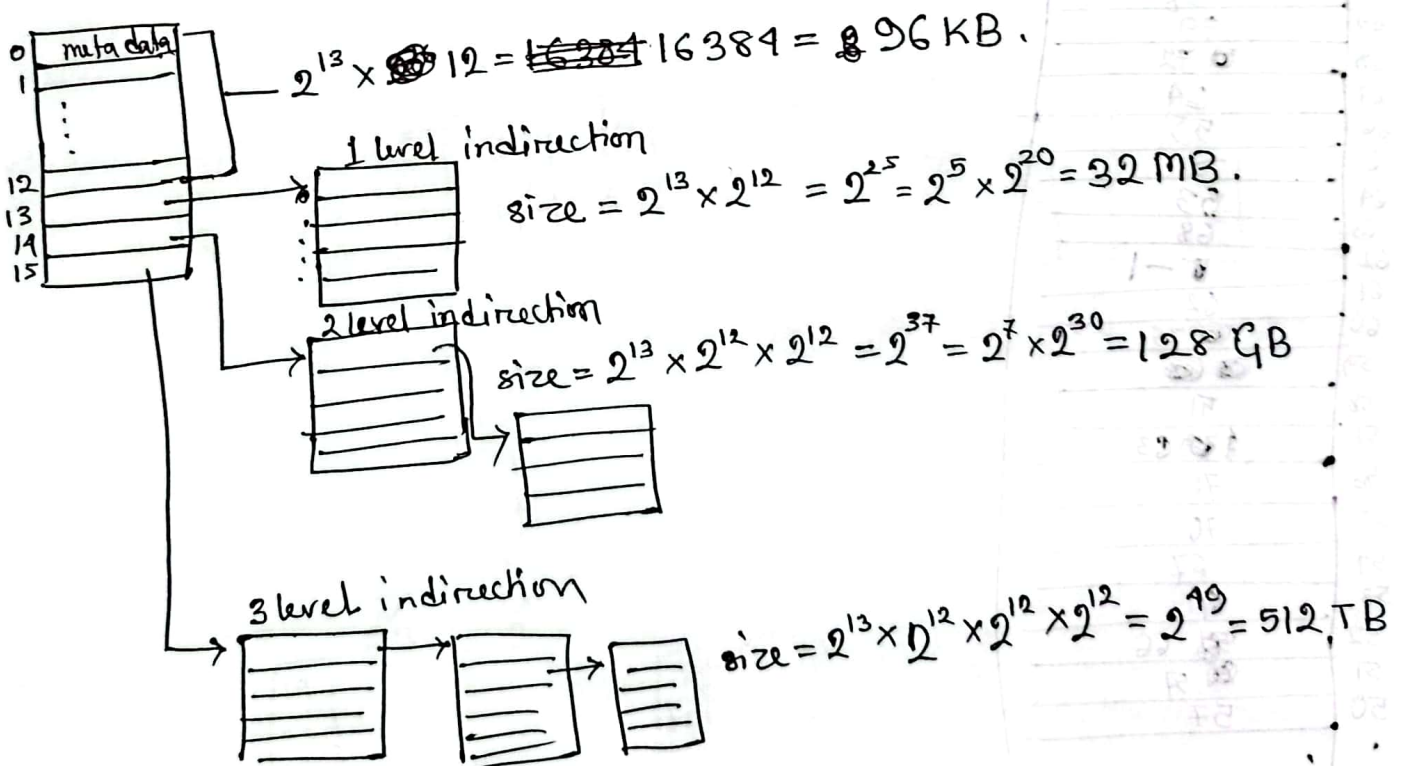 0 meta data
1
2^13 × 12 = 16384 = 96 KB.
12
13
14
15
1 level indirection
size = 2^13 × 2^12 = 2^25 = 2^5 × 2^20 = 32 MB.
2 level indirection
size = 2^13 × 2^12 × 2^12 = 2^37 = 2^7 × 2^30 = 128 GB
3 level indirection
size = 2^13 × 2^12 × 2^12 × 2^12 = 2^49 = 512 TB